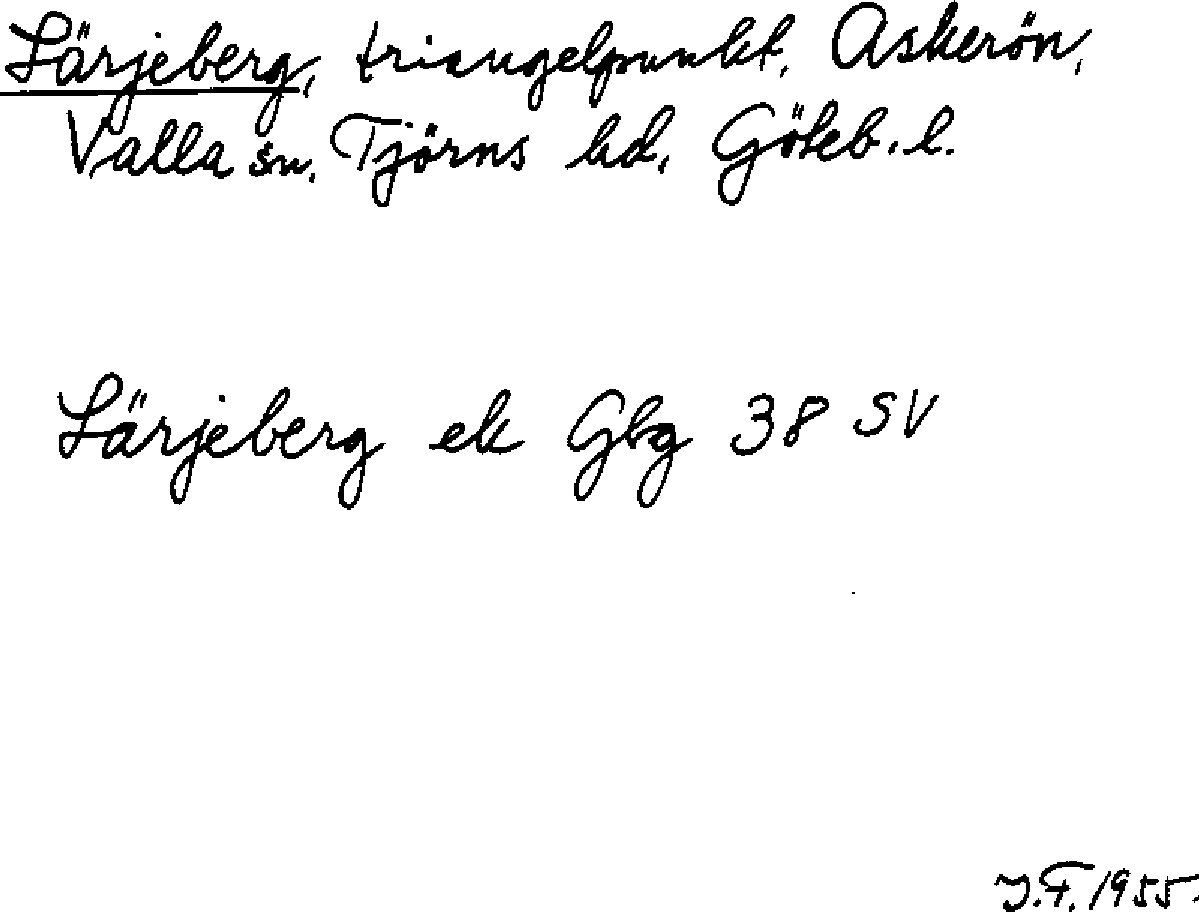 Lärjeberg, triangelpunkt, Askerön,
Valla sn. Tjörns hd. Göteb. l.
Lärjeberg ek Gbg 38 SV
J.F. 1955.